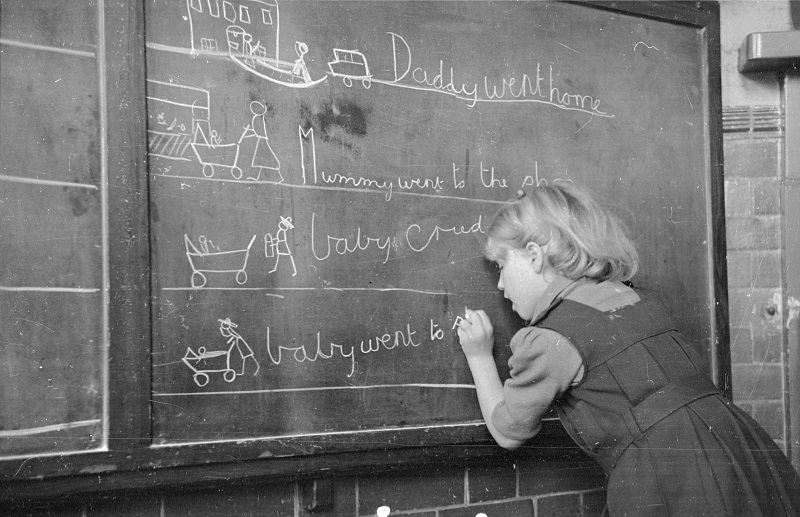 Daddy went home
Mummy went to the
baby cried
baby went to